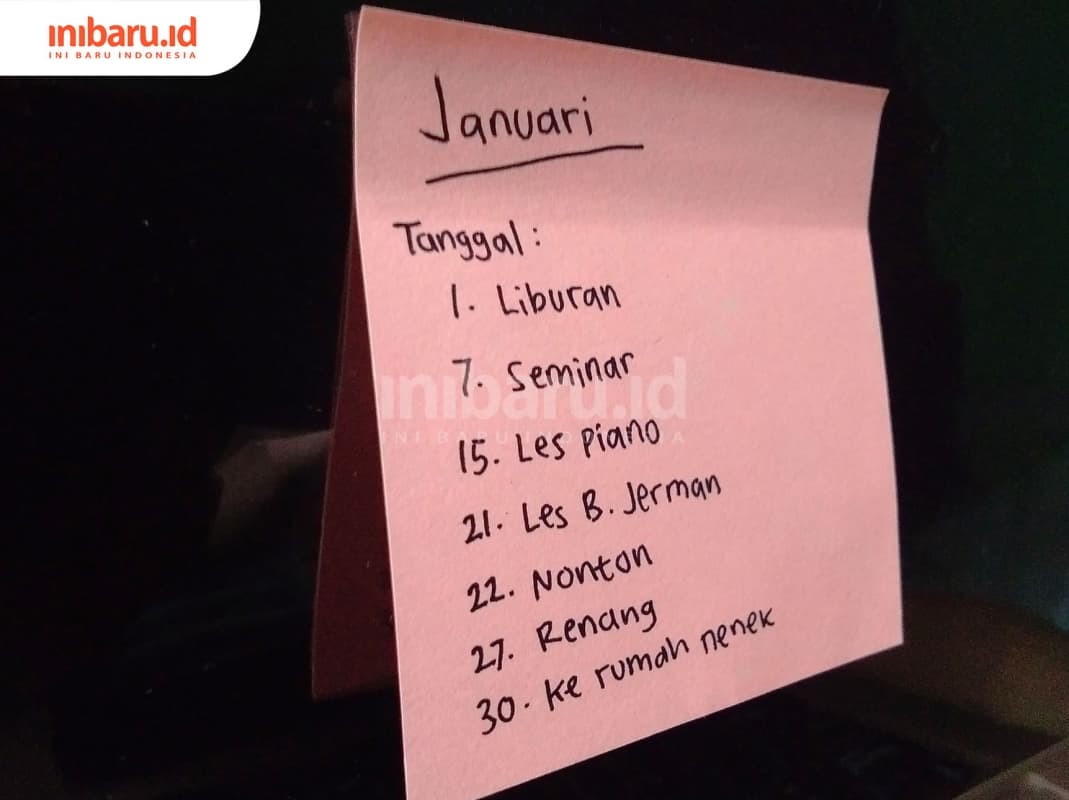 inibaru.id
INI BARU INDONESIA
Januari
Tanggal :
1. Liburan
7. Seminar
inibaru.id
INI BARU INDONESIA
15. Les Piano
21. Les B. Jerman
22. Nonton
27. Renang
30. Ke rumah nenek